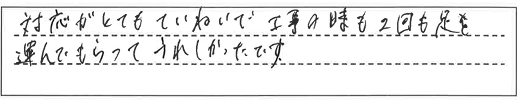 対応がとてもていねいで工事の時も2回も足を
運んでもらってうれしかったです